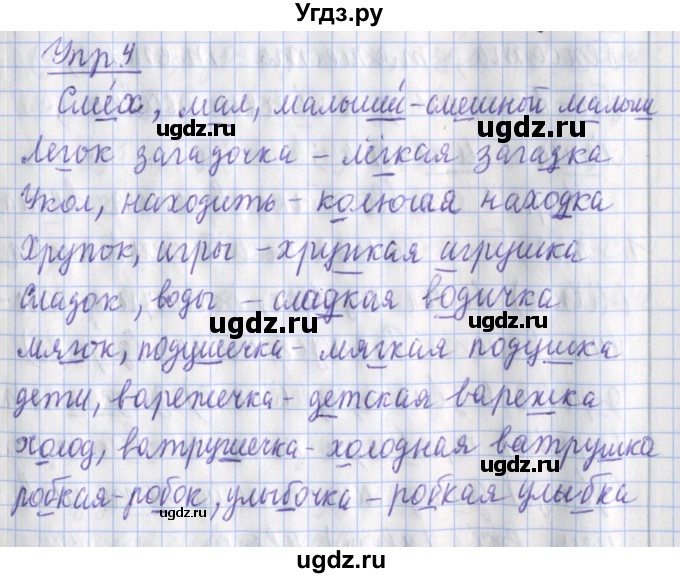 Угдз.ру
Упр 4
Смех, мал, малыши - смешной малыш
ugdz.ru ugdz.ru
Легок загадочка - лёгкая загадка
Укол, находить - колючая находка
ugdz.ru ugdz.ru
Хрупок, игры - хрупкая игрушка
Сладок, воды - сладкая водичка
ugdz.ru
мягок, подушечка - мягкая подушка
ugdz.ru ugdz.ru
дети, варежечка - детская варежка
холод, ватрушечка - холодная ватрушка
ugdz.ru ugdz.ru
робкая - робок, улыбочка - робкая улыбка
ugdz.ru